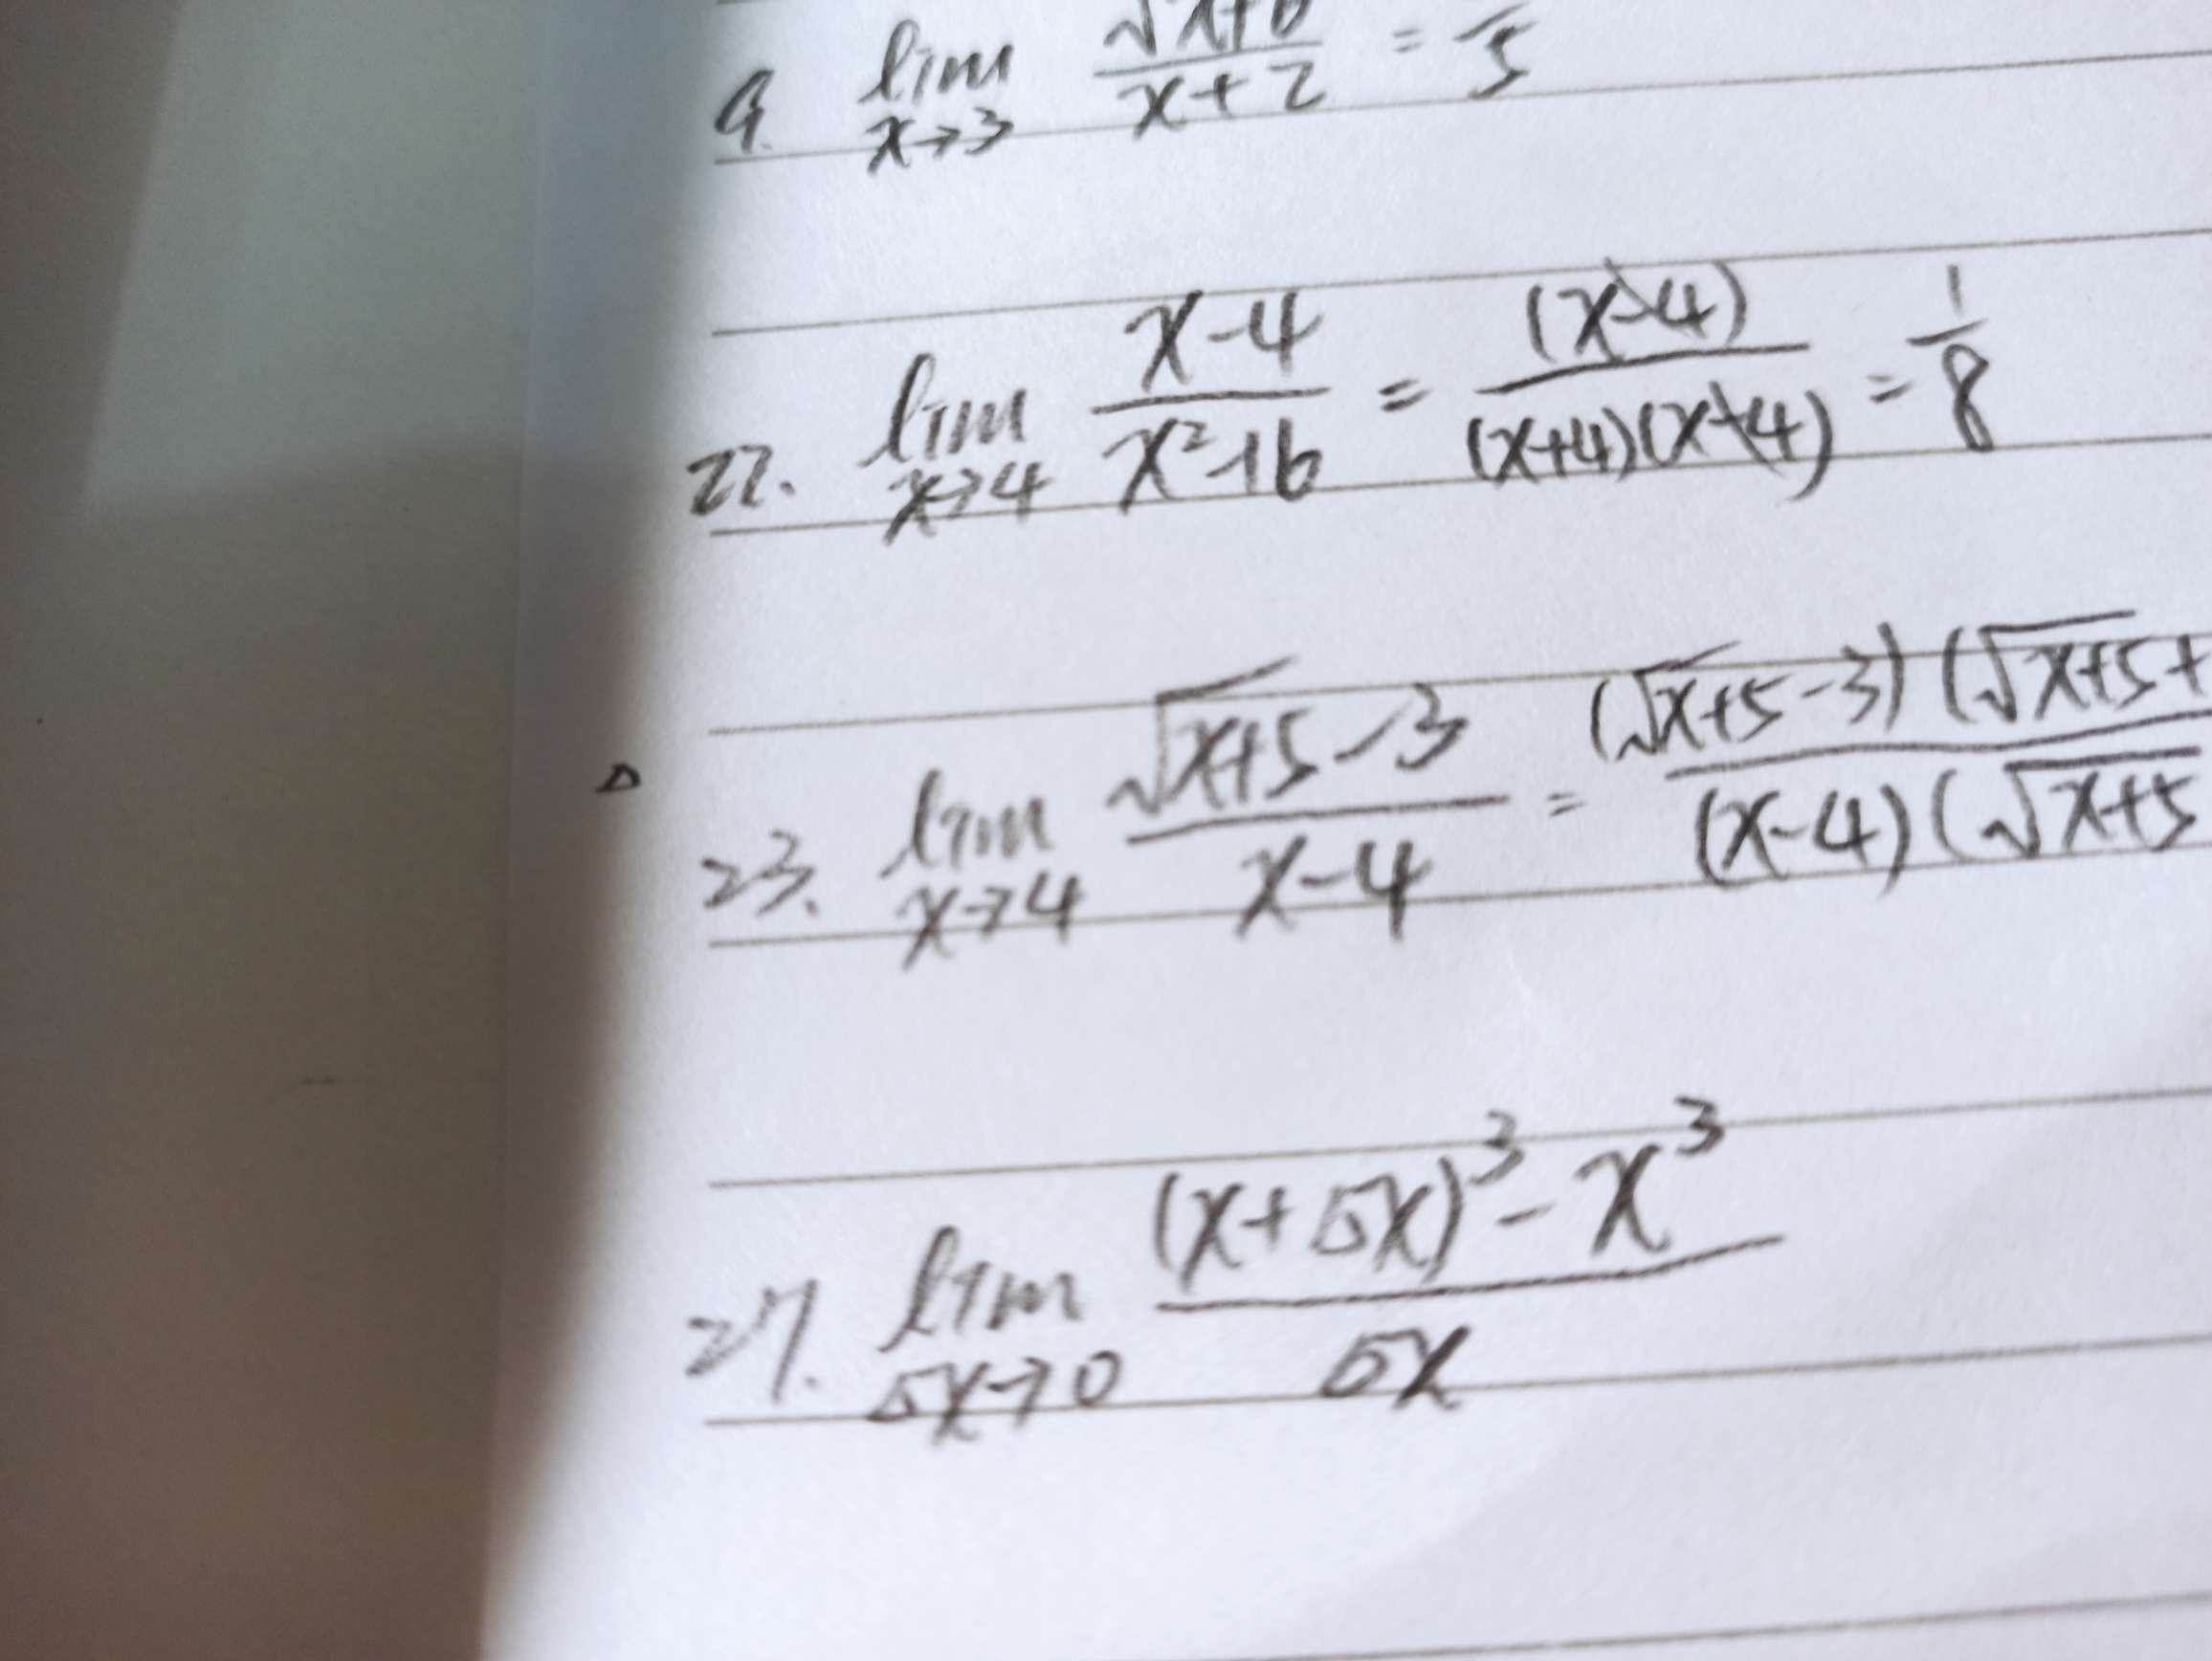 9. lim x→3 √x+6 / x+2 = /5
22. lim x→4 x-4 / x²-16 = (x-4) / (x+4)(x-4) = 1/8
Δ
23. lim x→4 √x+5 -3 / x-4 = (√x+5 -3) (√x+5 + / (x-4) (√x+5
27. lim Δx→0 (x+Δx)³ - x³ / Δx